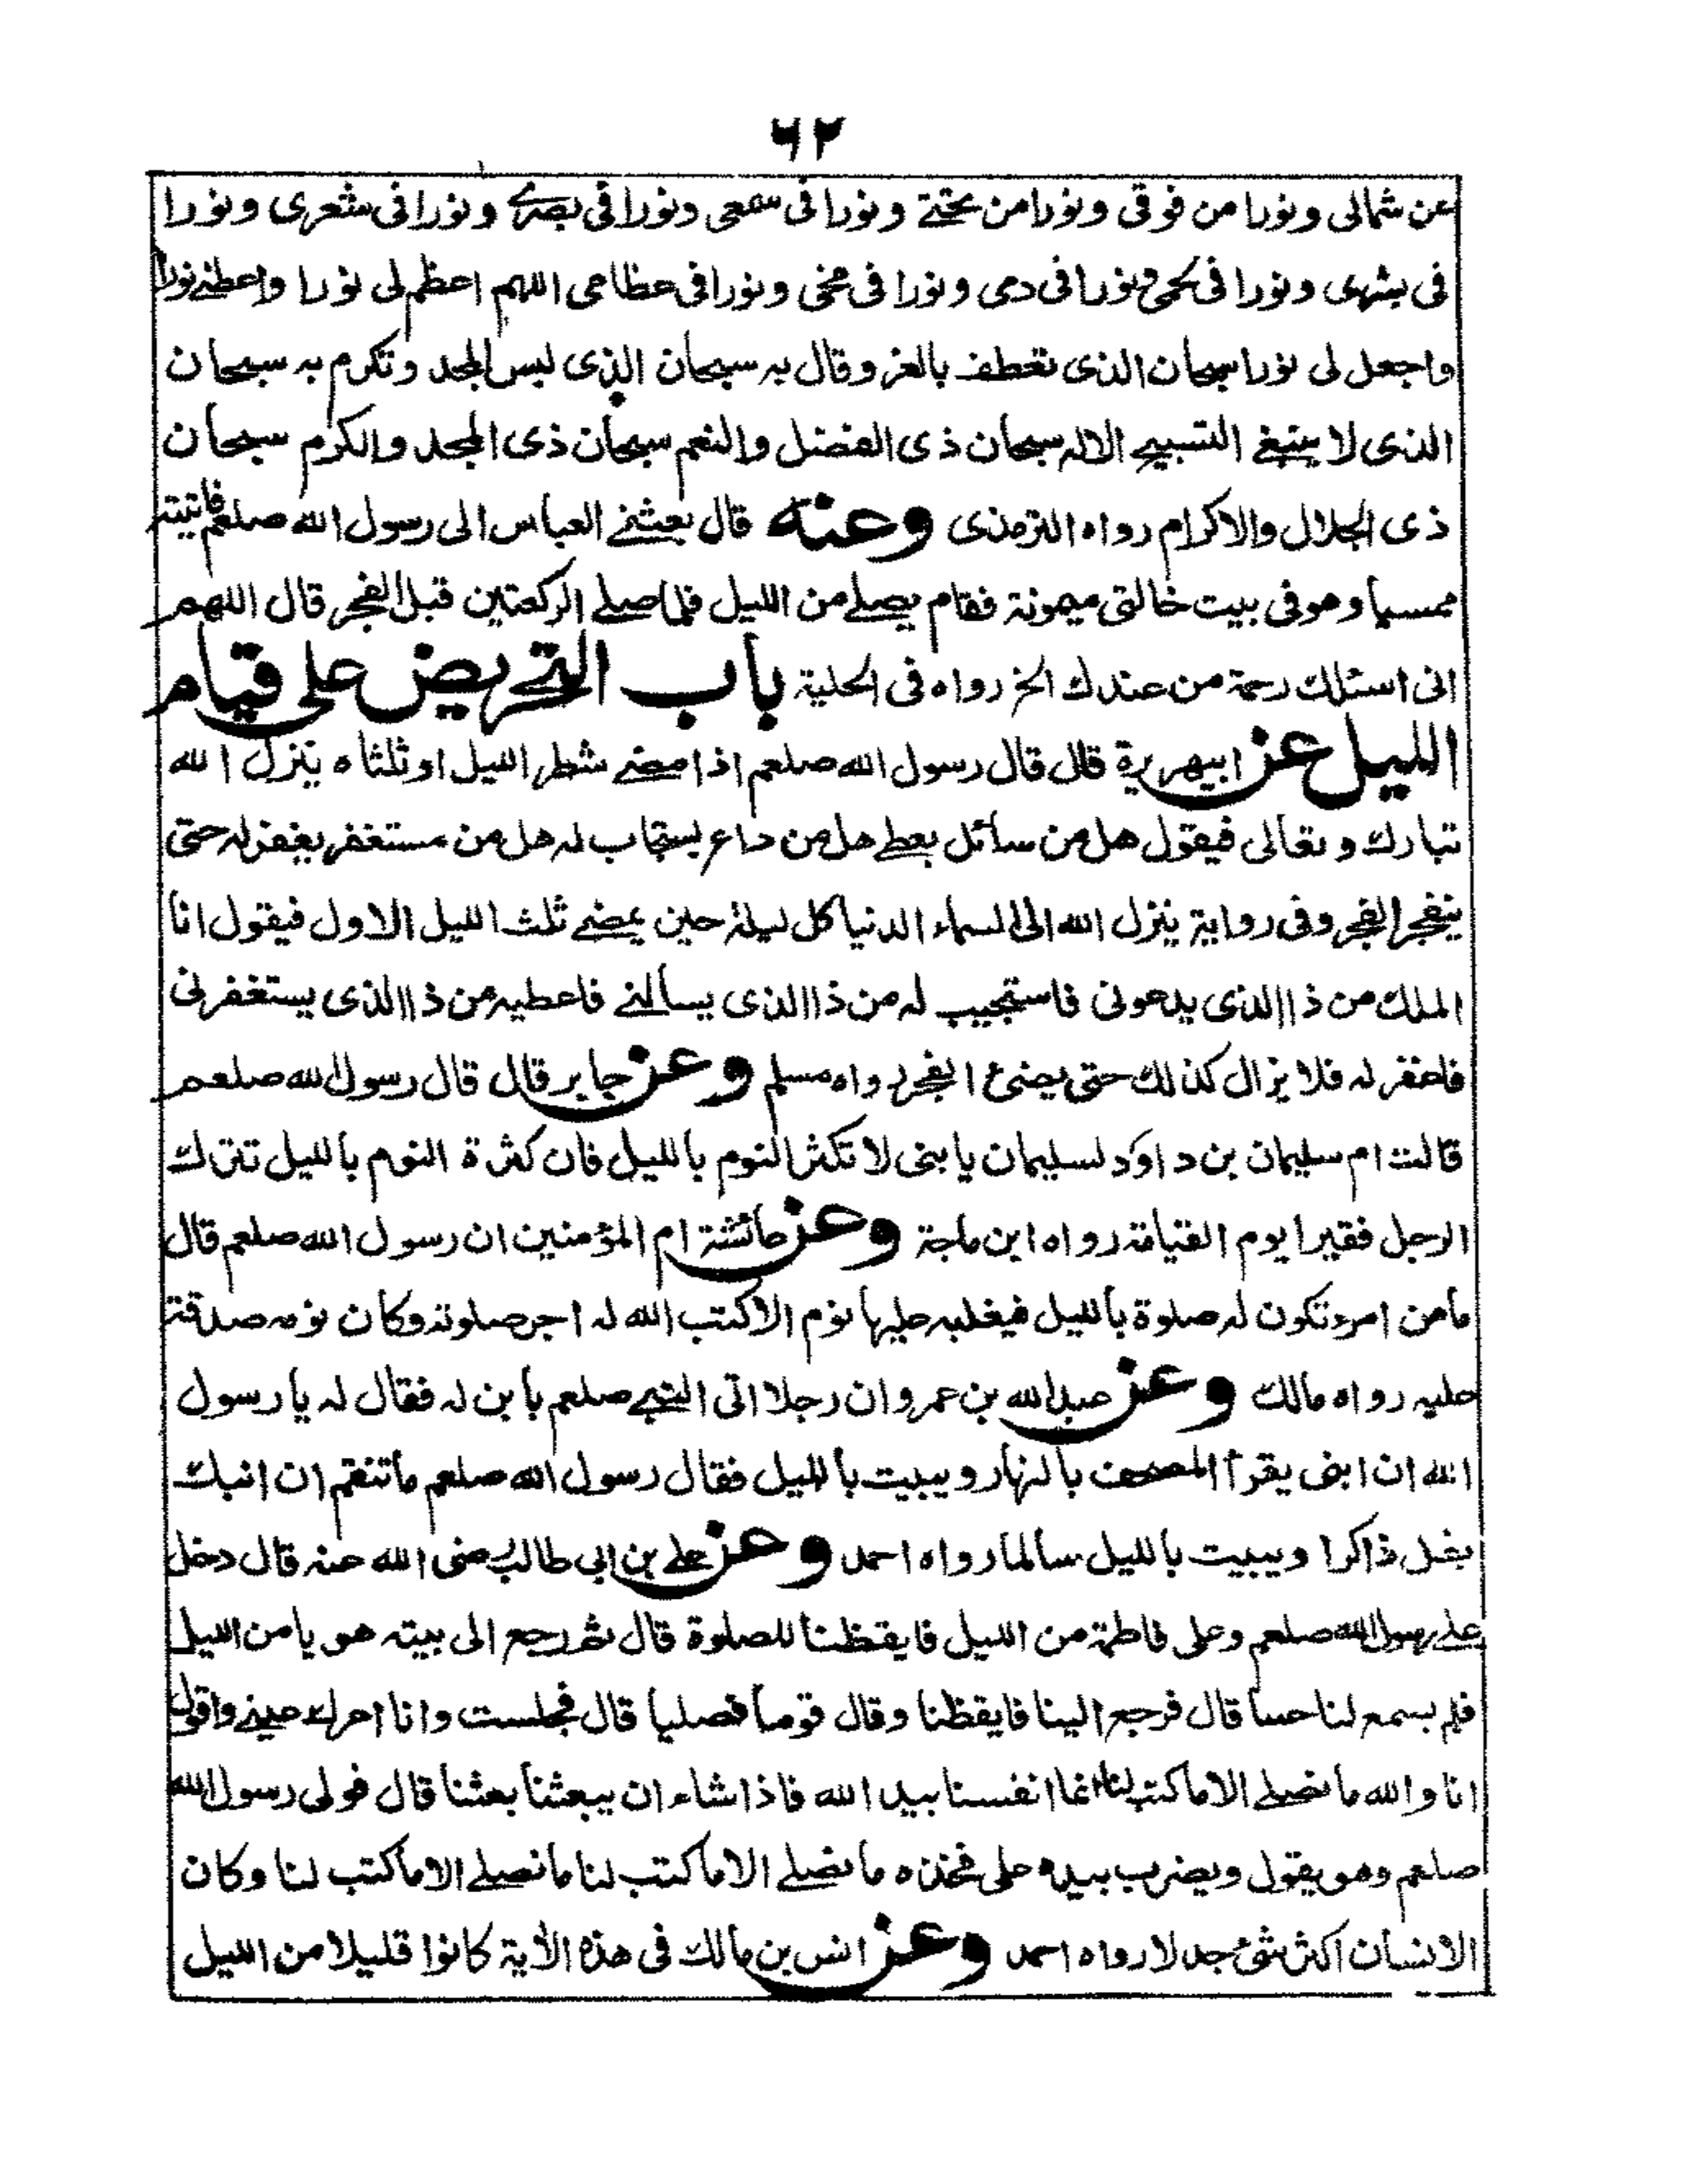 ٦٢
عن شمالى ونورا من فوقى ونورا من تحتے ونورا فى سمعى ونورا فى بصرے ونورا فى شعرى ونورا
فى بشرى ونورا فى لحمى ونورا فى دمى ونورا فى مخى ونورا فى عظامى اللهم اعظم لى نورا واعطنے نورا
واجعل لى نورا سبحان الذى تعطف بالعز وقال به سبحان الذى لبس المجد وتكرم به سبحان
الذى لا ينبغے التسبيح الا له سبحان ذى الفضل والنعم سبحان ذى المجد والكرم سبحان
ذى الجلال والاكرام رواه الترمذى وعنه قال بعثنے العباس الى رسول الله صلعم فاتيته
ممسيا وهو فى بيت خالتى ميمونة فقام يصلے من الليل فلما صلے الركعتين قبل الفجر قال اللهم
انى اسئلك رحمة من عندك الخ رواه فى الحلية باب التحريض على قيام
الليل عن ابيهريرة قال قال رسول الله صلعم اذا مضے شطر الليل او ثلثاه ينزل الله
تبارك وتعالى فيقول هل من سائل يعطے هل من داع يستجاب له هل من مستغفر يغفر له حتى
ينفجر الفجر وفى رواية ينزل الله الى السماء الدنيا كل ليلة حين يمضے ثلث الليل الاول فيقول انا
الملك من ذا الذى يدعونى فاستجيب له من ذا الذى يسألنے فاعطيه من ذا الذى يستغفرنى
فاغفر له فلا يزال كذلك حتى يضئ الفجر رواه مسلم وعن جابر قال قال رسول الله صلعم
قالت ام سليمان بن داود لسليمان يا بنى لا تكثر النوم بالليل فان كثرة النوم بالليل تترك
الرجل فقيرا يوم القيامة رواه ابن ماجة وعن عائشة ام المؤمنين ان رسول الله صلعم قال
مامن امرء تكون له صلوة بالليل فيغلبه عليها نوم الا كتب الله له اجر صلوته وكان نومه صدقة
عليه رواه مالك وعن عبد الله بن عمرو ان رجلا اتى النبے صلعم بابن له فقال له يا رسول
الله ان ابنى يقرأ المصحف بالنهار ويبيت بالليل فقال رسول الله صلعم ماتنقم ان انبك
يظل ذاكرا ويبيت بالليل سالما رواه احمد وعن علے بن ابى طالب رضى الله عنه قال دخل
علے رسول الله صلعم وعلى فاطمة من الليل فايقظنا للصلوة قال ثم رجع الى بيته هو يا من الليل
فلم يسمع لنا حسا قال فرجع الينا فايقظنا وقال قوما فصليا قال فجلست وانا اعرك عينے واقول
انا والله ما نصلے الا ما كتب لنا انما انفسنا بيد الله فاذا شاء ان يبعثنا بعثنا قال فولى رسول الله
صلعم وهو يقول ويضرب بيده على فخذه ما نصلے الا ما كتب لنا ما نصلے الا ما كتب لنا وكان
الانسان اكثر شئ جدلا رواه احمد وعن انس بن مالك فى هذه الأية كانوا قليلا من الليل